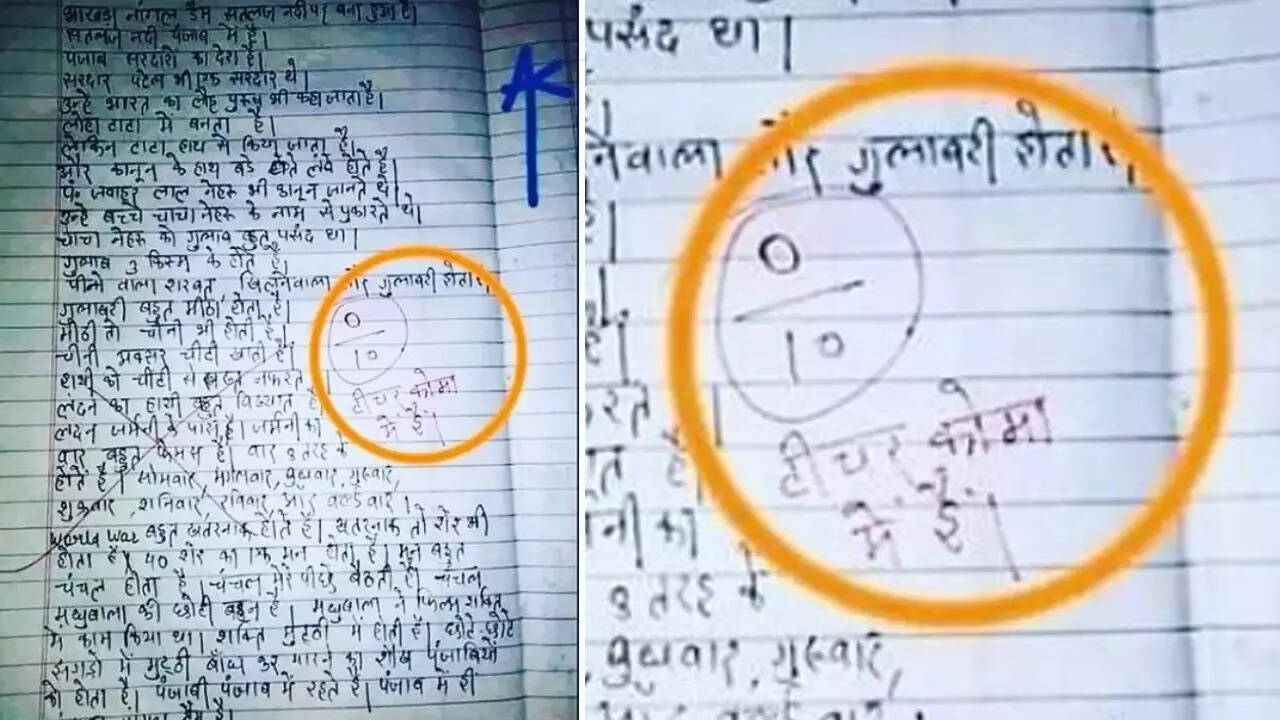 भाखडा नांगल डैम सतलज नदी पर बना हुआ है।
सतलज नदी पंजाब में है।
पंजाब सरदारों का देश है।
सरदार पटेल भी एक सरदार थे।
उन्हे भारत का लौह पुरुष भी कहा जाता है।
लोहा टाटा में बनता है।
लेकिन टाटा हाथ से किया जाता है।
और कानून के हाथ बडे होते लंबे होते है।
पं. जवाहर लाल नेहरू भी कानून जानते थे।
उन्हे बच्चे चाचा नेहरू के नाम से पुकारते थे।
चाचा नेहरू को गुलाब बहुत पसंद था।
गुलाब 3 किस्म के होते है।
पीने वाला शरबत, खिलनेवाला और गुलाबरी होता
गुलाबरी बहुत मीठा होता है।
मीठी तो चीनी भी होती है।
चीनी अक्सर चींटी खाती है।
हाथी को चींटी से बहुत नफरत
लंदन का हाथी बहुत विख्यात है
लंदन जर्मनी के पास है। जर्मनी का
वार बहुत फेमस है। वार 8 तरह के
होते है। सोमवार, मंगलवार, बुधवार, गुरुवार,
शुक्रवार, शनिवार, रविवार और वर्ल्ड वार।
World War बहुत खतरनाक होते है। खतरनाक तो शेर भी
होता है। 40 शेर का एक मन होता है। मन बहुत
चंचल होता है। चंचल मेरे पीछे बैठती है। चंचल
मधुबाला की छोटी बहन है। मधुबाला ने फिल्म शक्ति
मे काम किया था। शक्ति मुट्ठी में होती है। छोटे-छोटे
झगड़ो में मुट्ठी बाँध कर मारने का शौख पंजाबियों
को होता है। पंजाबी पंजाब में रहते है। पंजाब में ही
0
10
टीचर कोमा
में है।
पसंद था।
नेवाला और गुलाबरी होता
0
10
टीचर कोमा
में है।
नी का
8 तरह के
बुधवार, गुरुवार,